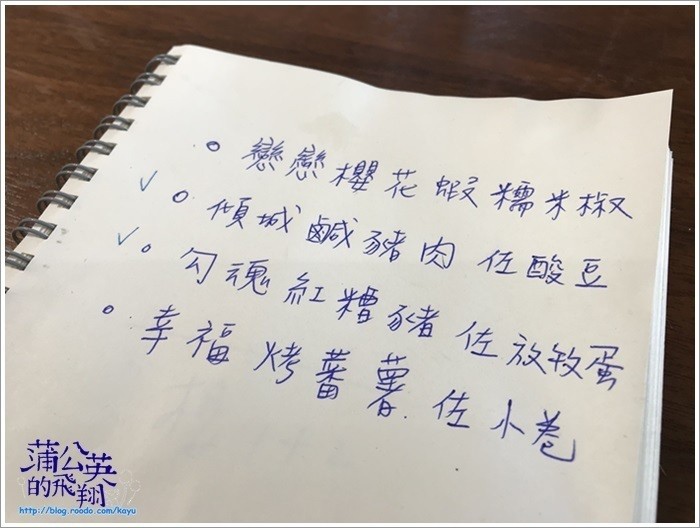 戀戀櫻花蝦糯米椒
傾城鹹豬肉 佐酸豆
勾魂紅糟豬 佐放牧蛋
幸福烤蕃薯 佐小卷
蒲公英
的飛翔
http://blog.roodo.com/kayu